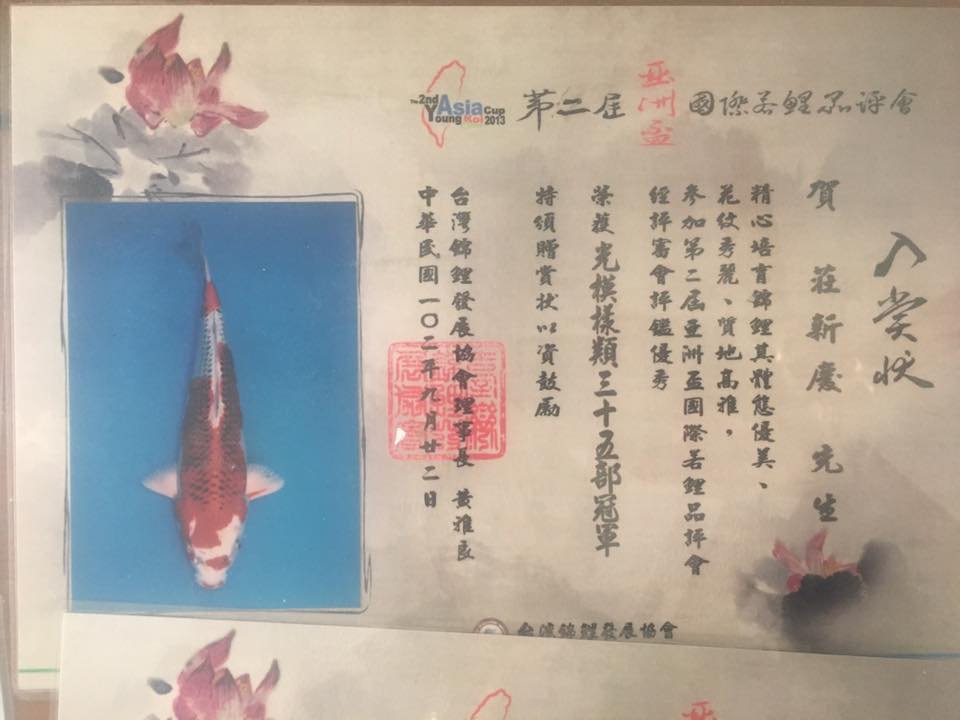 The 2nd Asia Cup
Young Koi 2013
第二屆亞洲盃國際若鯉品評會
入賞狀
賀 莊新慶 先生
精心培育錦鯉其體態優美、
花紋秀麗、質地高雅，
參加第二屆亞洲盃國際若鯉品評會
經評審會評鑑優秀
榮獲光模樣類三十五部冠軍
特頒贈賞狀以資鼓勵
台灣錦鯉發展協會理事長 黃雅良
中華民國一〇二年九月廿二日
台灣錦鯉發展協會